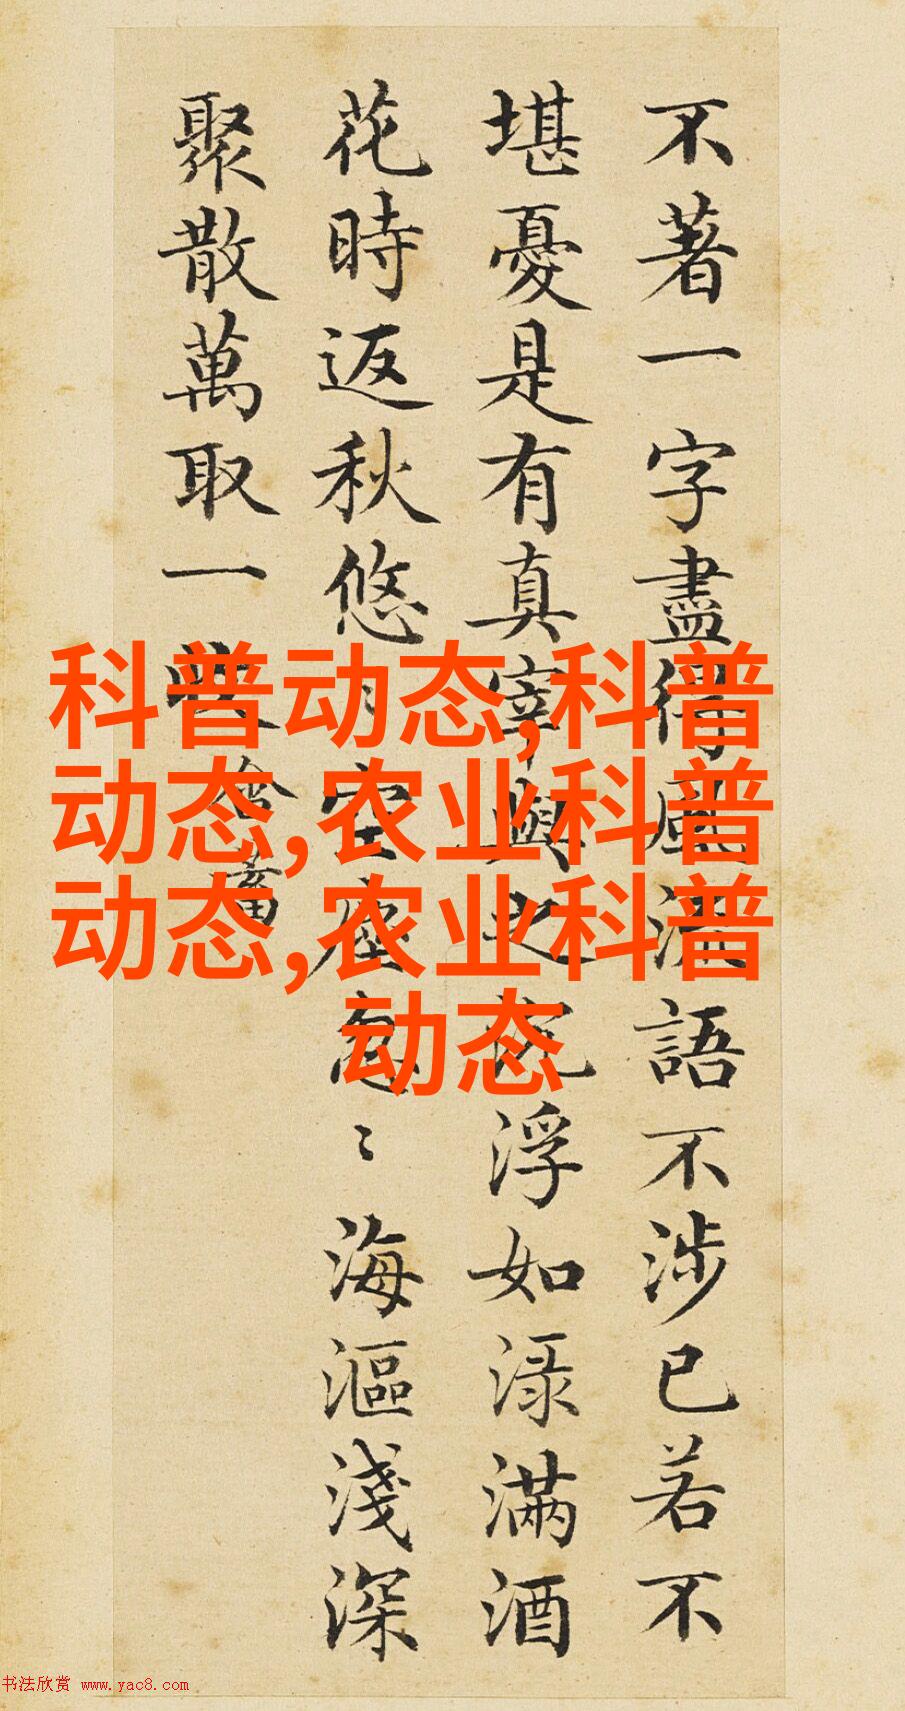 不著一字盡得風流語不涉已若不
堪憂是有真宰與之沉浮如渌滿酒
花時返秋悠〻空塵忽〻海漚淺深
聚散萬取一收
含蓄
科普动态,科普
动态,农业科普
动态,农业科普
动态
书法欣赏 www.yac8.com